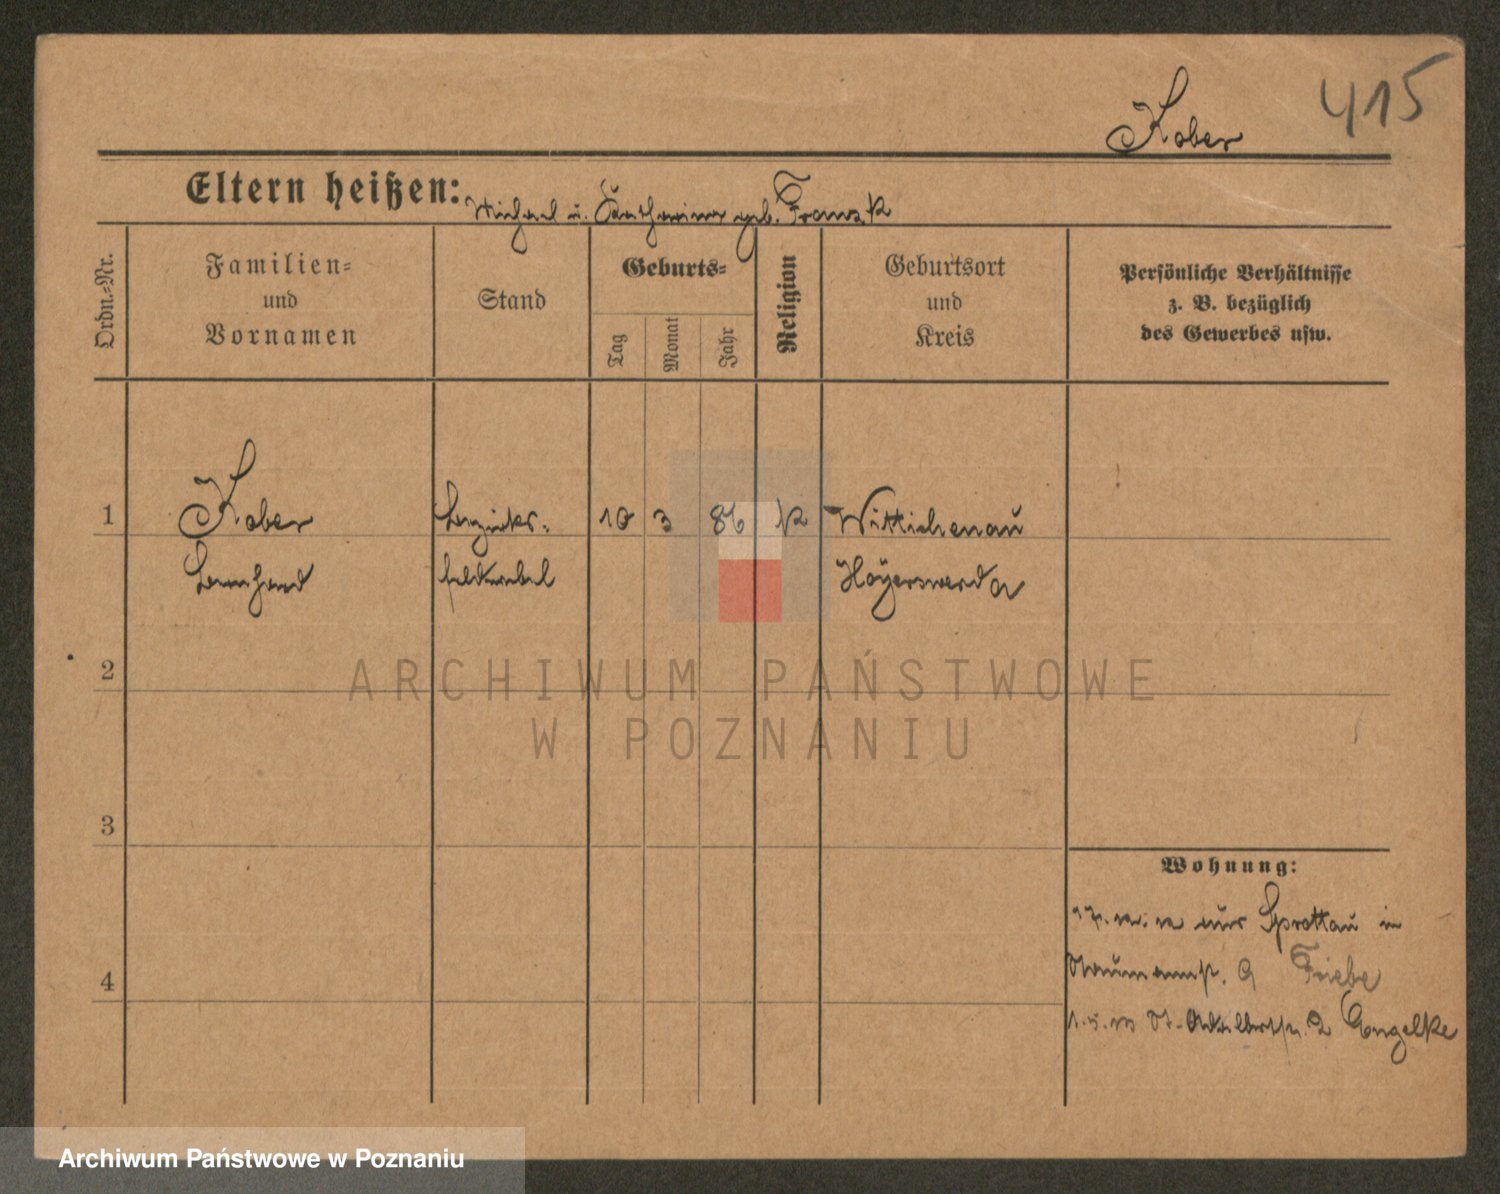 415
Kober
Eltern heißen: Michael u. Katharina geb. Franzk
Ordn.=Nr.
Familien=
und
Vornamen
Stand
Geburts=
Tag
Monat
Jahr
Religion
Geburtsort
und
Kreis
Persönliche Verhältnisse
z. B. bezüglich
des Gewerbes usw.
1 Kober Bezirks- 10 3 86 K Wittichenau
Bernhard feldwebel Hoyerswerda
2
ARCHIWUM PAŃSTWOWE
W POZNANIU
3
Wohnung:
aus Sprottau in
4
Naumannstr. 9 Friebe
St. Adalbertstr. 2 Engelke
Archiwum Państwowe w Poznaniu